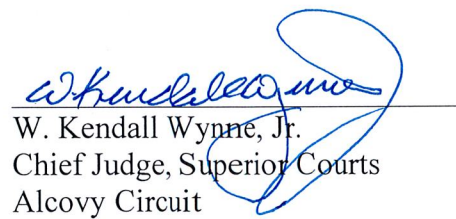 W. Kendall Wynne
W. Kendall Wynne, Jr.
Chief Judge, Superior Courts
Alcovy Circuit